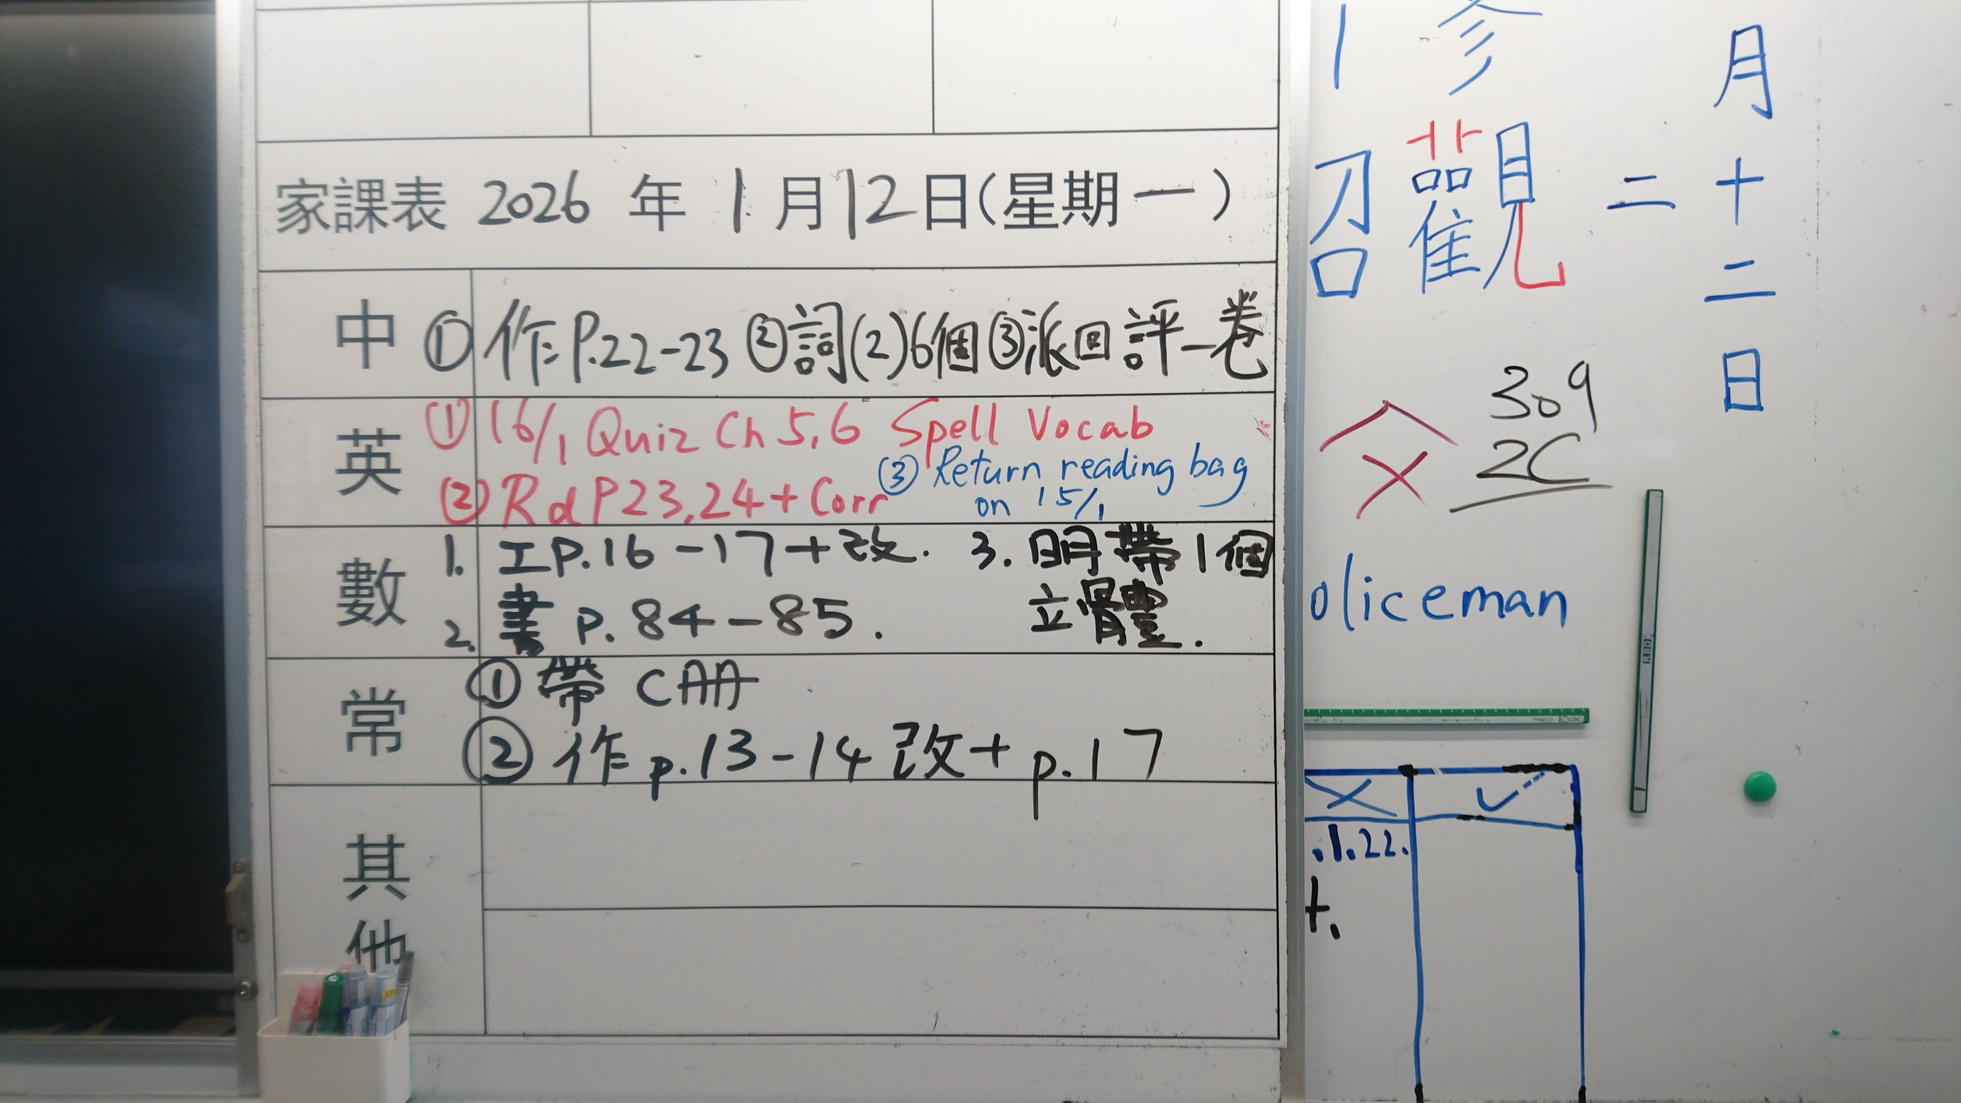 家課表 2026 年 1 月 12 日(星期一)
中 ① 作 P.22-23 ② 詞(2)6個 ③ 派回評一卷
英 ① 16/1 Quiz Ch 5,6 Spell Vocab
② Rd P23,24 + Corr ③ Return reading bag
on 15/1
數 1. 工P.16-17+改. 3. 明帶1個
2. 書 P.84-85. 立體.
常 ① 帶 CAA
② 作 p.13-14 改+ p.17
其他
月十二日
二
參觀
309
2C
oliceman
.1.22.
t.